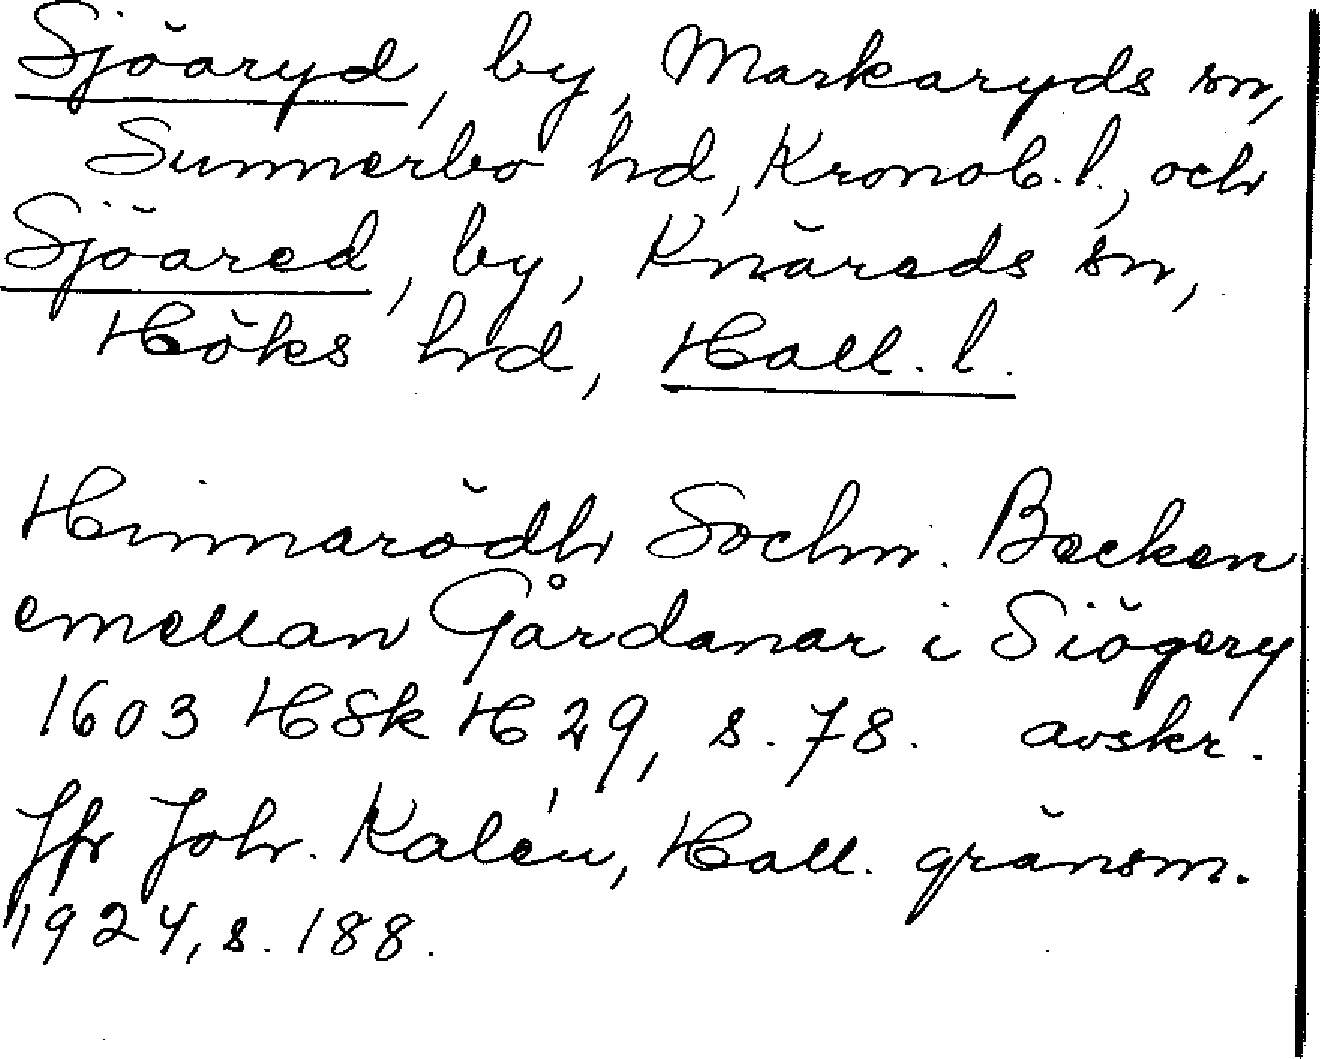 Sjöaryd, by, Markaryds sn,
Sunnerbo hd, Kronob. l., och
Sjöared, by, Knäreds sn,
Höks hd, Hall. l.
Hinnarödh Sochn. Becken
emellan Gårdanar i Siögery
1603 HSk H 29, s. 78. avskr.
Jfr Joh. Kalén, Hall. gränsm.
1924, s. 188.